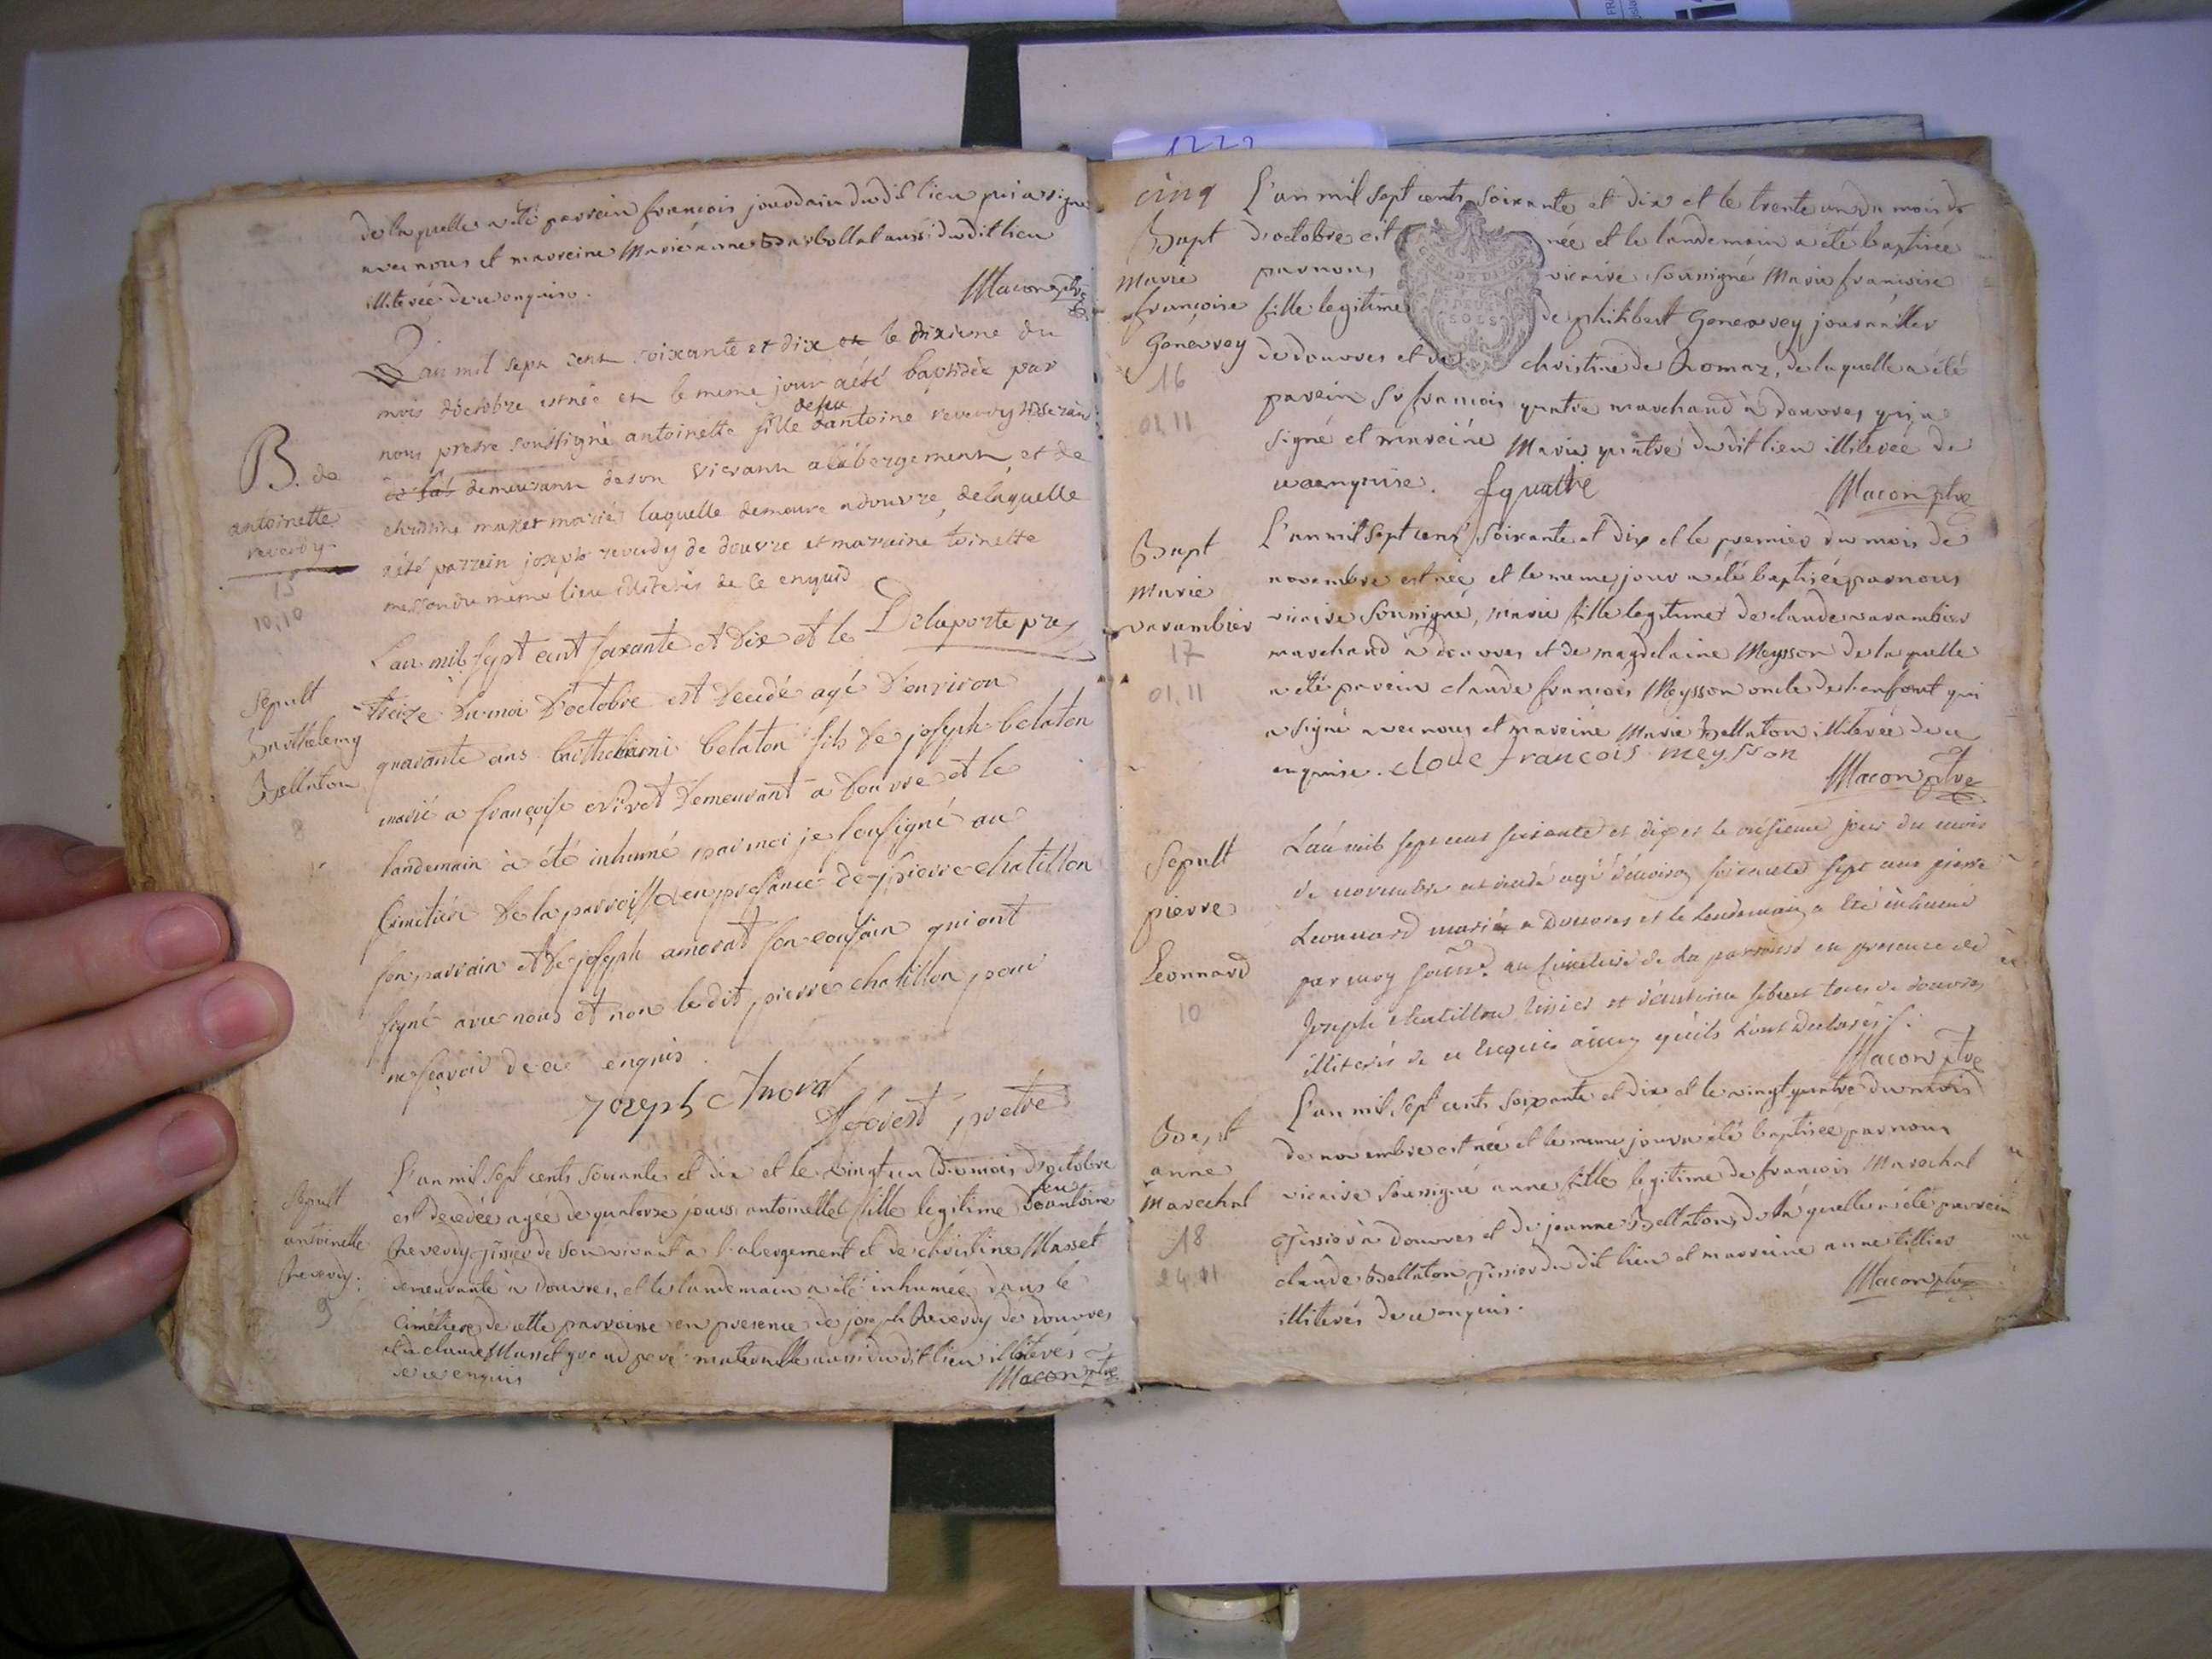 de laquelle a été parrein francois jourdain dudit lieu qui a signé
avec nous et marreine Marieanne Barbollat aussi dudit lieu
illiterée de ce enquise.
Macon ptre
L'an mil sept cent soixante et dix et le dixieme du
mois d'octobre est née et le meme jour a été baptisée par
nous pretre soussigné antoinette fille de feu antoine reverdy tisseran
demeurant de son vivant a labergement et de
christine masset mariés laquelle demeure a douvre, de laquelle
a été parrein joseph reverdy de douvre et marraine toinette
du meme lieu illiterés de ce enquis
Delaporte pre
B. de
antoinette
reverdy
15
10,10
L'an mil sept cent soixante et dix et le
treize du moi d'octobre est décédé agé d'environ
quarante ans barthelemi belaton fils de joseph belaton
marié a françoise demeurant a douvre et le
landemain à été inhumé par moi je sousigné au
Cimetière de la parroisse en presance de pierre chatillon
son parrain et de joseph amorat son cousin qui ont
signé avec nous et non le dit pierre chatillon pour
ne sçavoir de ce enquis.
joseph Amorat
pretre
Sepult
Barthelemy
Bellaton
8
L'an mil sept cents soixante et dix et le vingt un du mois d'octobre
est décédée agée de quatorze jours antoinette fille legitime de feu antoine
Reverdy tissier de son vivant a l'abergement et de christine Masset
demeurante à Douvres, et le landemain a été inhumée dans le
Cimétiere de cette parroisse en presence de joseph Reverdy de douvres
et de claude Masset grand pere maternelle aussi dudit lieu illiterés
de ce enquis
Macon ptre
Sepult
antoinette
Reverdy.
9
1222
cinq
L'an mil sept cents soixante et dix et le trente un du mois de
d'octobre est née et le landemain a été baptisée
par nous vicaire soussigné Marie françoise
fille legitime de philibert Genevrey journallier
de douvres et de christine de Romaz, de laquelle a été
parein Sr francois quatre marchand à douvres qui a
signé et mareine Marie quatre dudit lieu illiterée de
ce enquise.
fquatre
Macon ptre
Bapt
Marie
françoise
Genevrey
16
01,11
L'an mil sept cent soixante et dix et le premier du mois de
novembre est née et le meme jour a été baptisée par nous
vicaire soussigné, marie fille legitime de claude varambier
marchand à douvres et de magdelaine Meysson de laquelle
a été parein claude françois Meysson oncle de l'enfant qui
a signé avec nous et mareine Marie Bellaton illiterée de ce
enquise.
clode francois meysson
Macon ptre
Bapt
Marie
varambier
17
01,11
L'an mil sept cent soixante et dix et le jour du mois
de novembre est decedé agé d'environ soixante sept ans pierre
Leonnard marié a Douvres et le lendemain a été inhumé
par moy soussé. au Cimetiere de la parroisse en presence de
Joseph chatillon tissier et tous de douvres
illiterés de ce enquis ainsy qu'ils l'ont declarés /.
Macon ptre
Sepult
pierre
Leonnard
10
L'an mil sept cents soixante et dix et le vingt quatre du mois
de novembre est née et le meme jour a été baptisée par nous
vicaire soussigné anne fille legitime de francois Marechal
Tissier à douvres et de jeanne Bellaton, de laquelle a été parrein
claude Bellaton Tissier dudit lieu et marreine anne tillier
illiterés de ce enquis.
Macon ptre
Bapt
anne
Marechal
18
24,11